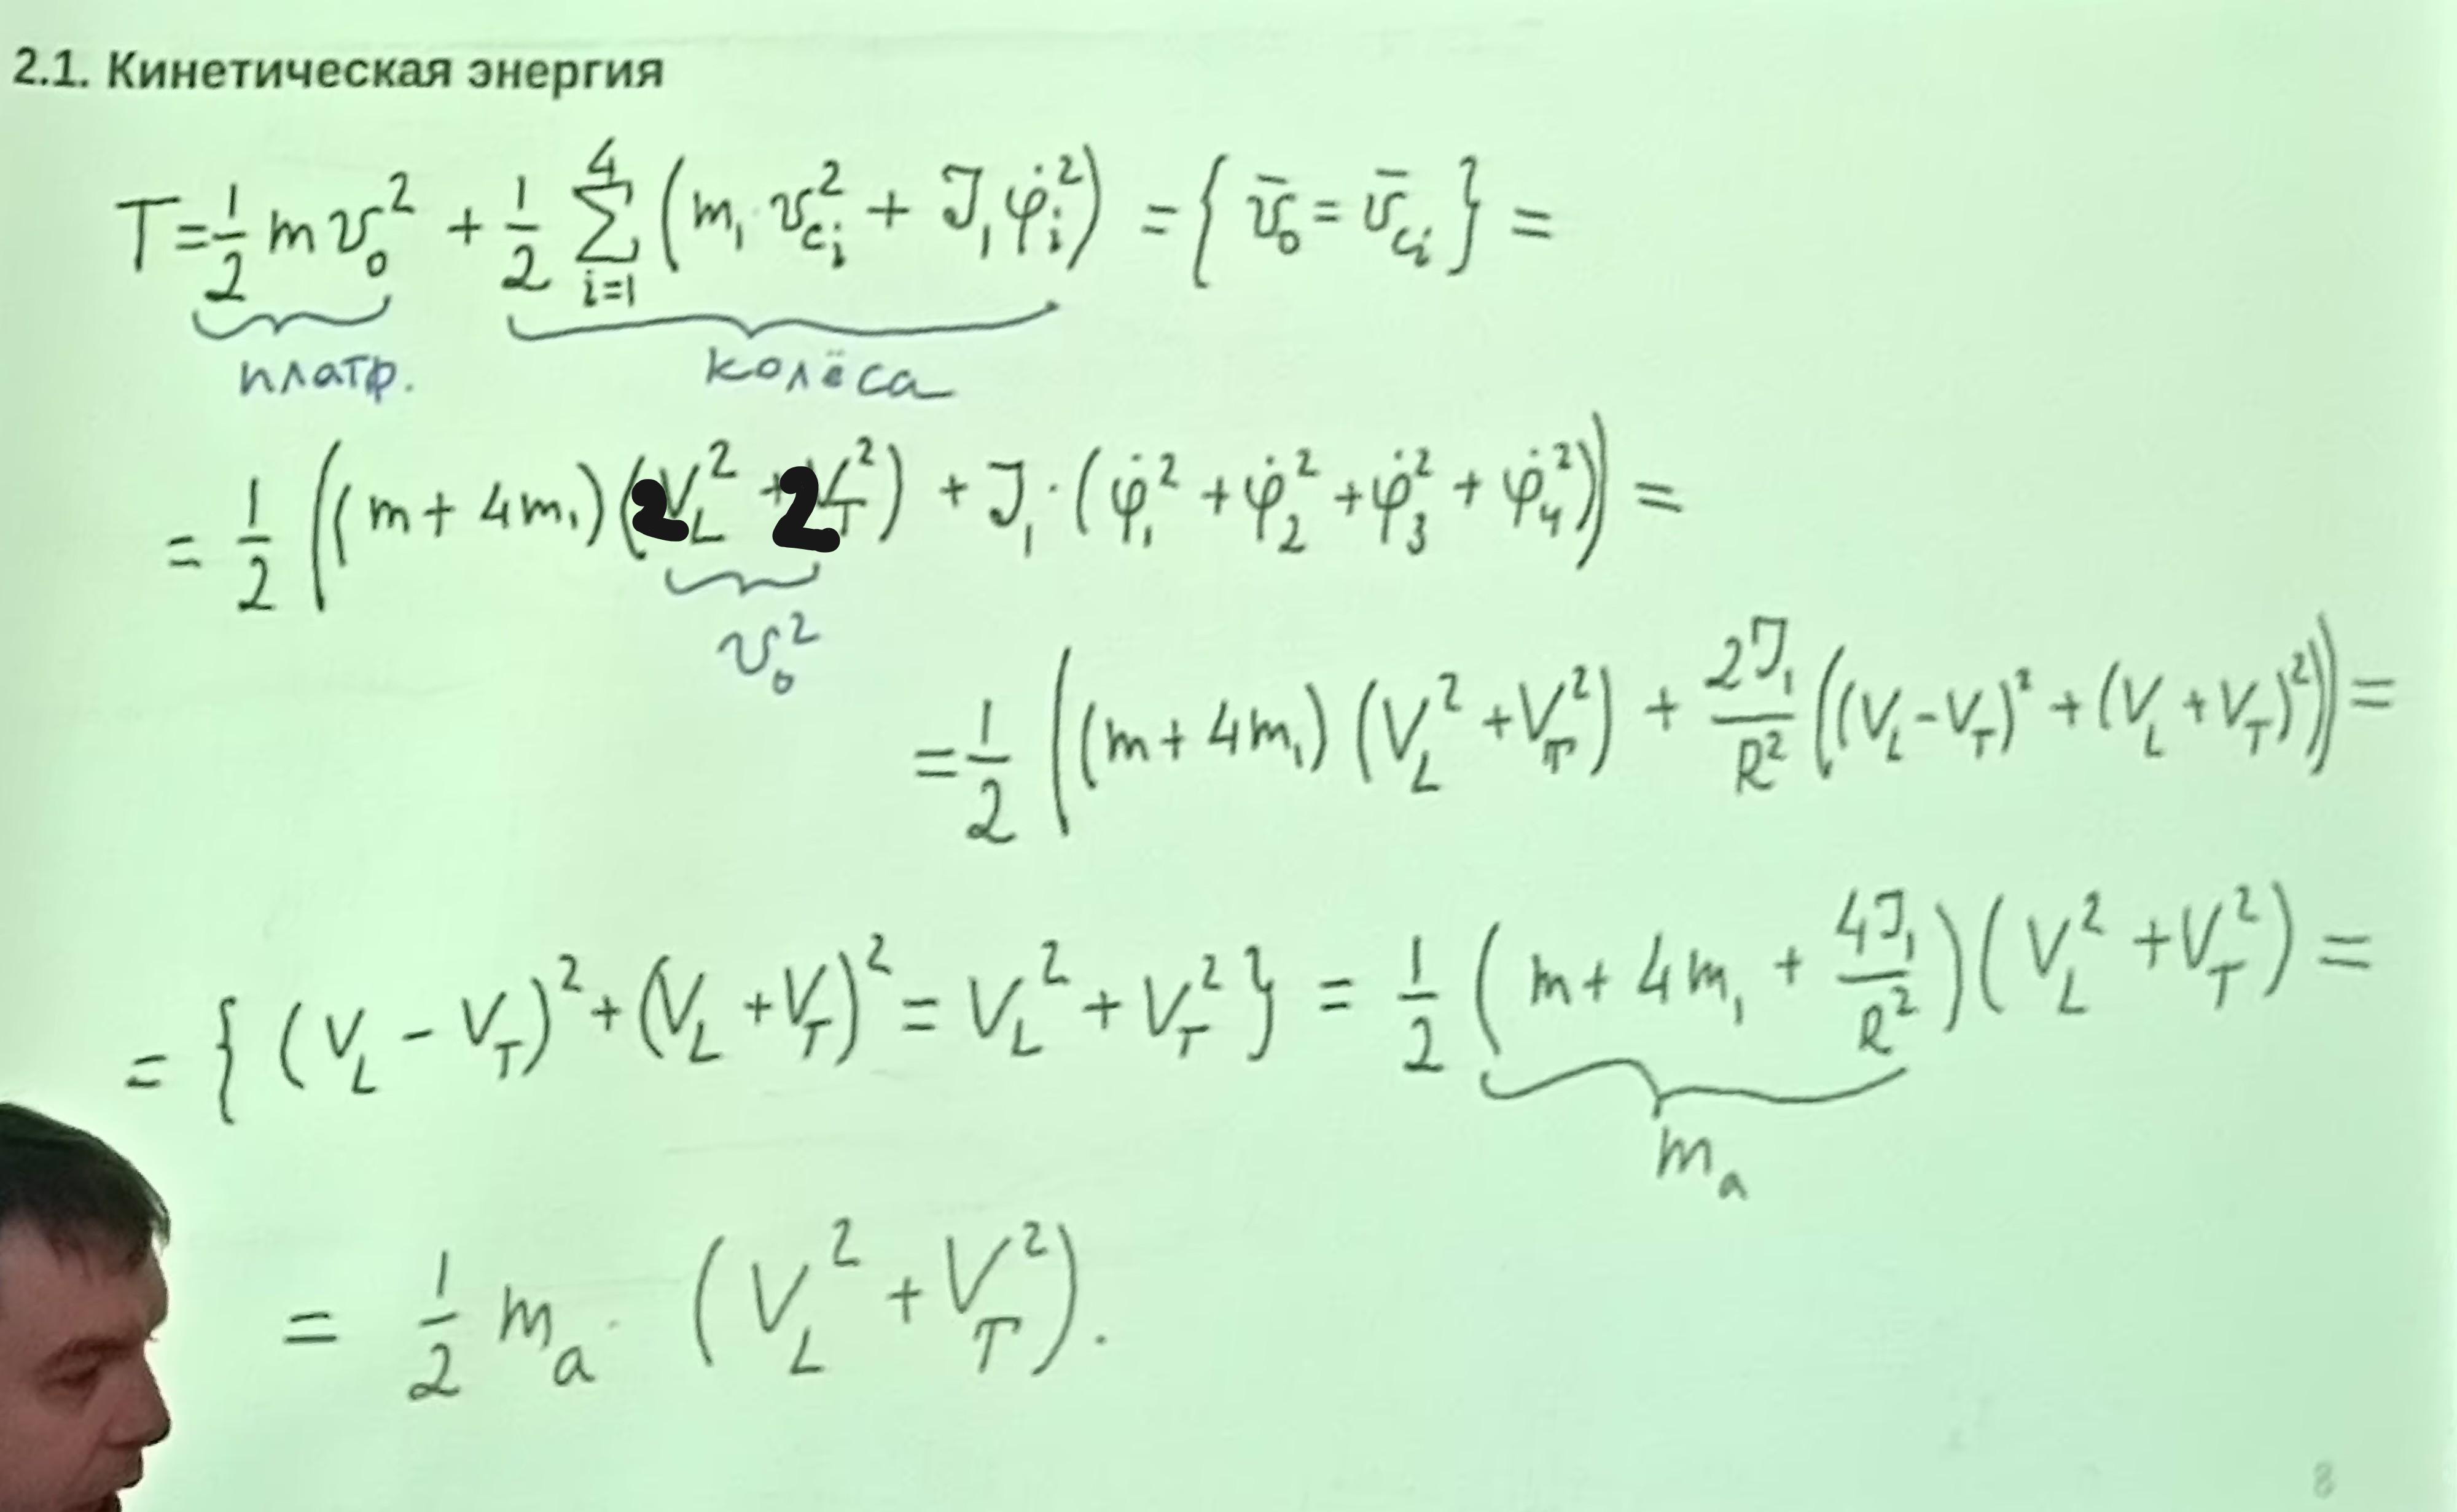 2.1. Кинетическая энергия
T = 1/2 m v₀² + 1/2 ∑_{i=1}^{4} (m₁ · v_{c_i}² + J₁ φ̇_i²) = { v̄₀ = v̄_{c_i} } =
платф. колёса
= 1/2 ((m + 4m₁)(2V_L² + 2V_T²) + J₁ · (φ̇₁² + φ̇₂² + φ̇₃² + φ̇₄²)) =
v₀²
= 1/2 ((m + 4m₁)(V_L² + V_T²) + 2J₁/R² ((V_L - V_T)² + (V_L + V_T)²)) =
= { (V_L - V_T)² + (V_L + V_T)² = V_L² + V_T² } = 1/2 (m + 4m₁ + 4J₁/R²)(V_L² + V_T²) =
m_a
= 1/2 m_a · (V_L² + V_T²).
8